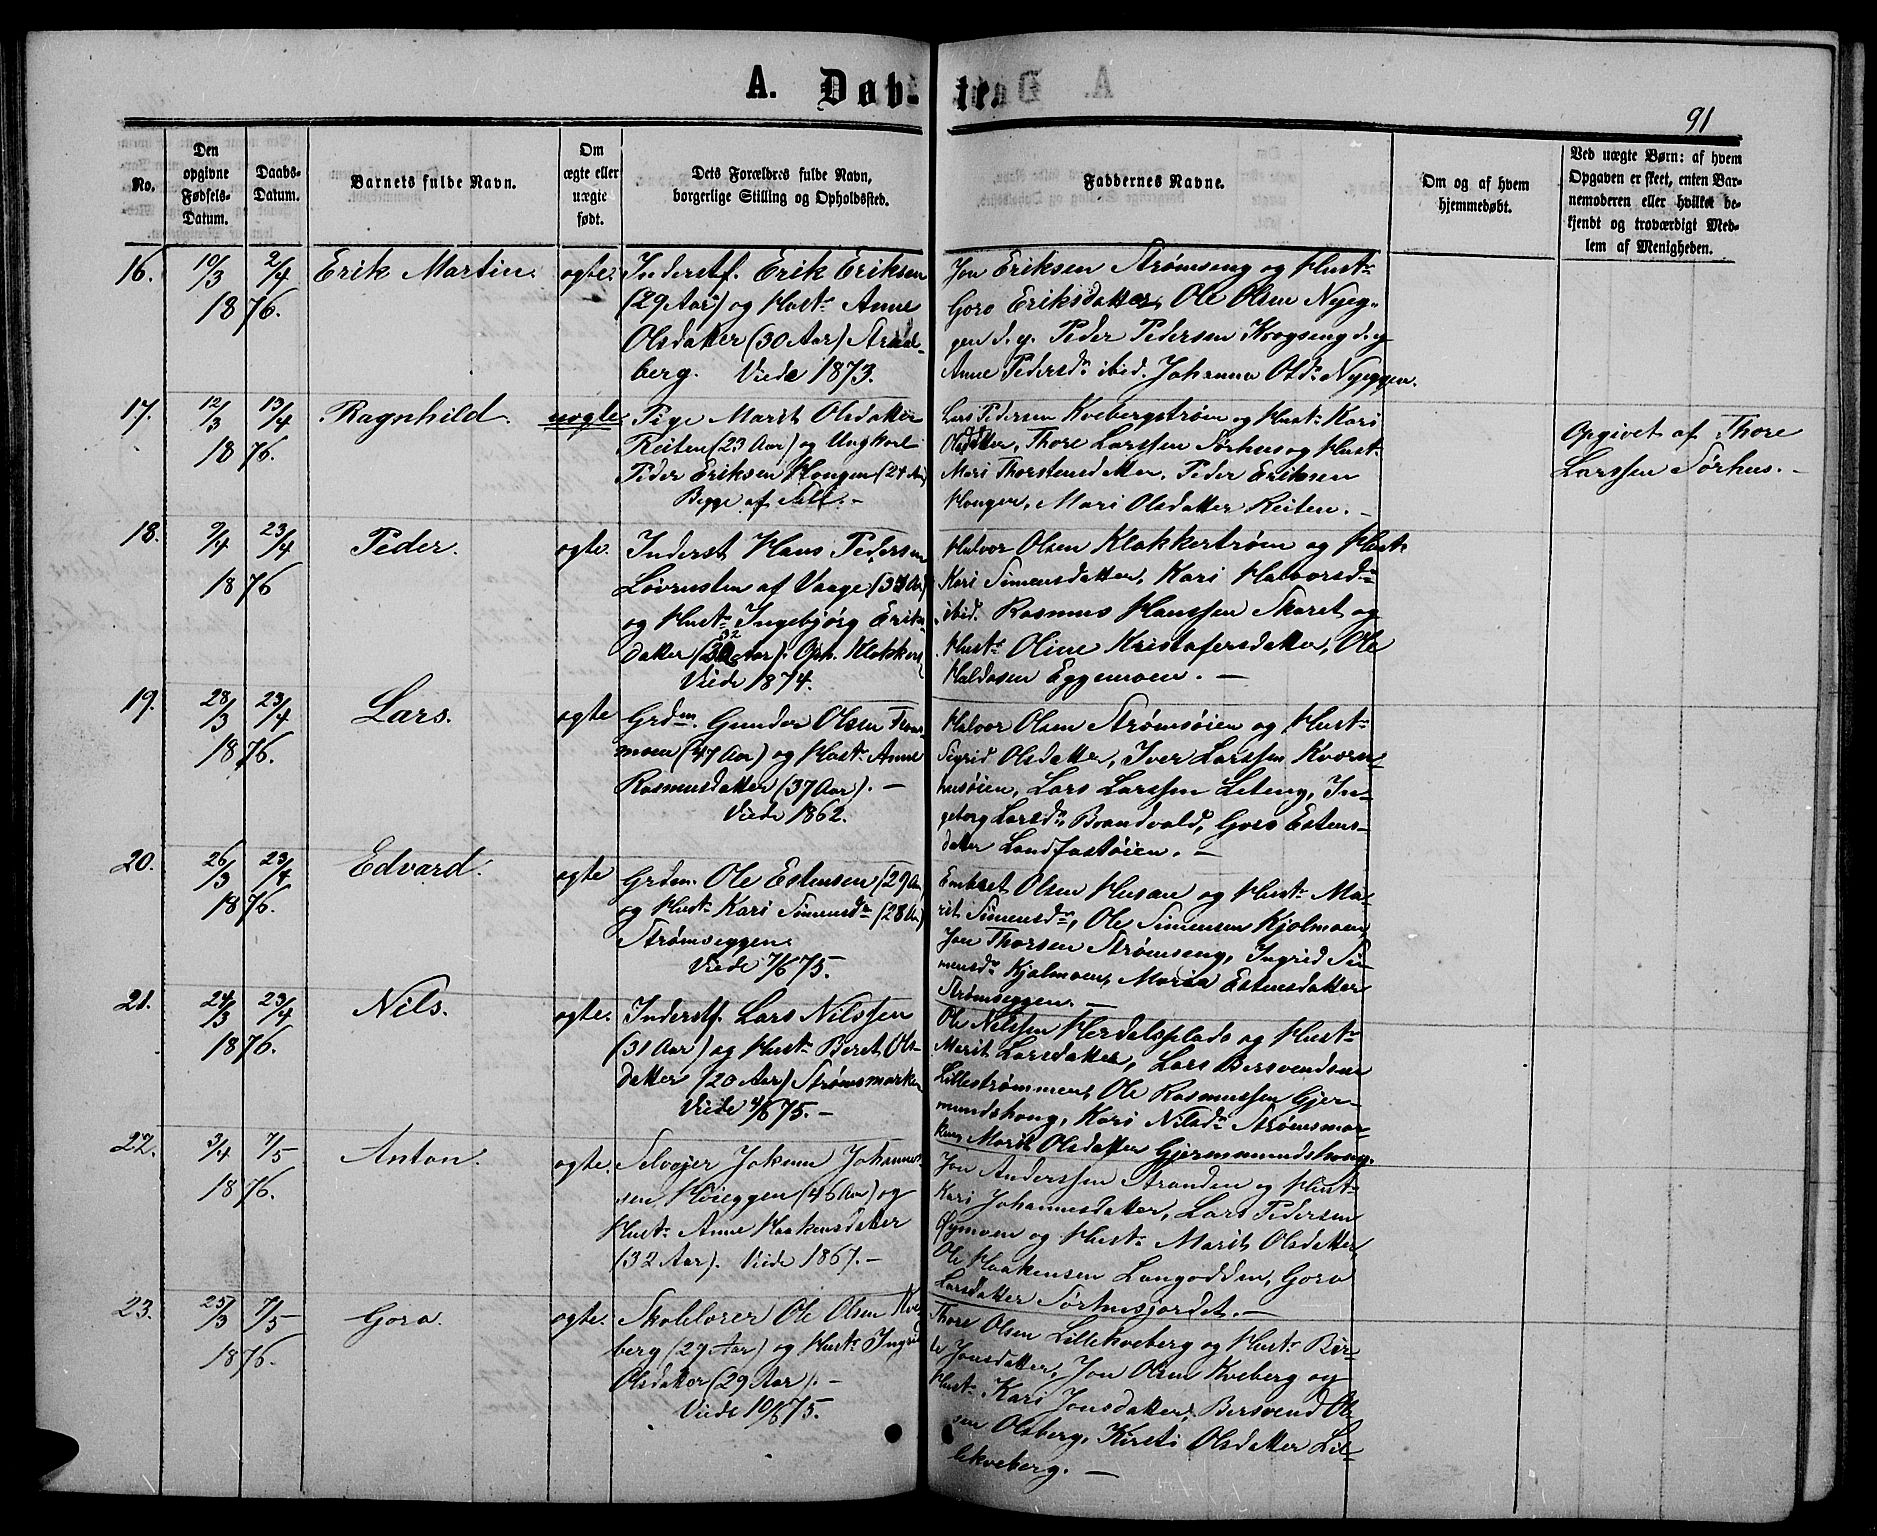 A. Døb-
te.
91
No.
Den opgivne Fødsels-Datum.
Daabs-Datum.
Barnets fulde Navn.
Om ægte eller uægte født.
Dets Forældres fulde Navn, borgerlige Stilling og Opholdssted.
Faddernes Navne.
Om og af hvem hjemmedøbt.
Ved uægte Børn: af hvem Opgaven er skeet, enten Barnemoderen eller hvilket bekjendt og troværdigt Medlem af Menigheden.
16. 10/3 2/4 Erik Martin. ægte.
1876.
Inderstf. Erik Eriksen
(29 Aar) og Hust. Anne
Olsdatter (30 Aar)
berg. Viede 1873.
Jon Eriksen Strømseng og Hust.
Goro Eriksdatter, Ole Olsen Nyeg-
gen d. y. Peder Pedersen Krogseng d. y
Anne Pedersd. ibid. Johanna Olsd. Nyeggen.
17. 12/3 13/4 Ragnhild. uægte
1876.
Pige Marit Olsdatter
Reiten (23 Aar) og Ungkarl
Peder Eriksen Haugen (24 Aar)
Begge af Sell. -
Lars Pedersen Kvebergstrøm og Hust. Kari
Olsdatter, Thore Larssen Sørhus og Hust.
Mari Thorstensdatter, Peder Eriksen
Haugen, Mari Olsdatter Reiten. -
Opgivet af Thore
Larssen Sørhus. -
18. 9/4 23/4 Peder. ægte.
1876
Inderst Hans Pedersen
af Vaage
og Hust. Ingebjørg Eriks-
datter (32 Aar). Oph. Klokkers
Viede 1874.
Halvor Olsen Klokkerstrøm og Hust.
Kari Simensdatter, Kari Halvorsd.
ibid. Rasmus Hanssen Skaret og
Hust. Oline Kristofersdatter, Ole
Haldosen Eggemoen. -
19. 28/3 23/4 Lars. ægte
1876.
Grdm. Gunder Olsen
moen (47 Aar) og Hust. Anne
Rasmusdatter (37 Aar). -
Viede 1862.
Halvor Olsen Strømsøien og Hust.
Sigrid Olsdatter, Iver Larssen Kværn-
husøien, Lars Larssen Leteng, In-
geborg Larsd. Brandvold, Goro Estens-
datter Landfastøien. -
20. 26/3 23/4 Edvard. ægte
1876.
Grdm. Ole Estensen (29 Aar)
og Hust. Kari Simensd. (28 Aar)
Strømseggen.
Viede 7/6 75.
Embret Olsen Husan og Hust. Ma-
rit Simensd., Ole Simensen Kjølmoen,
Jon Thorsen Strømseng, Ingrid Si-
mensd. Kjølmoen, Maria Estensdatter
Strømseggen. -
21. 24/3 23/4 Nils. ægte.
1876.
Inderstf. Lars Nilssen
(31 Aar) og Hust. Beret Ols-
datter (20 Aar) Strømsmarken
Viede 4/6 75. -
Ole Nilssen Herdalsplads og Hust.
Marit Larsdatter, Lars Bersvendsen
Lillestrømmen, Ole Rasmussen Gjer-
mundshoug, Kari Nilsd. Strømsmar-
ken, Marit Olsdatter Gjermmundshoug.
22. 3/4 7/5 Anton. ægte.
1876.
Selvejer Jokum Johannes-
sen Høieggen (46 Aar) og
Hust. Anne Haakensdatter
(32 Aar). Viede 1867. -
Jon Anderssen Stranden og Hust.
Kari Johannesdatter, Lars Pedersen
Øymoen og Hust. Marit Olsdatter,
Ole Haakensen Langodden, Goro
Larsdatter Sørhusjordet. -
23. 25/3 7/5 Goro. ægte.
1876.
Skolelærer Ole Olsen Kve-
berg (27 Aar) og Hust. Ingrid
Olsdatter (29 Aar). -
Viede 10/6 75.
Thore Olsen Lillekveberg og Hust. Ber-
te Jonsdatter, Jon Olsen Kveberg og
Hust. Kari Jonsdatter, Bersvend Ol-
sen Olsberg, Kirsti Olsdatter Lil-
lekveberg. -